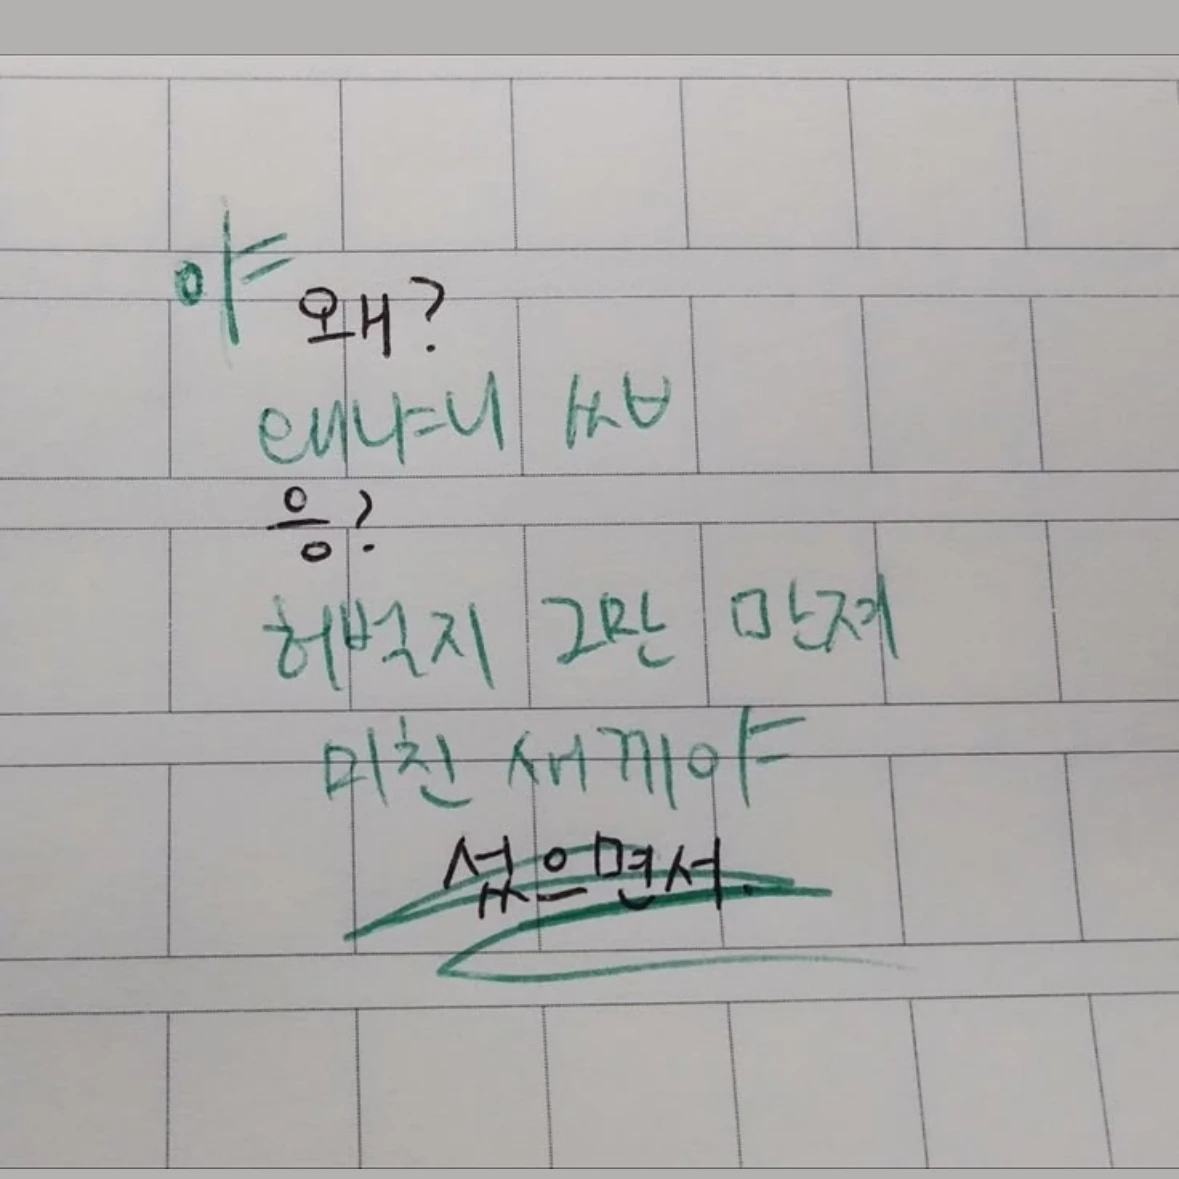 야 왜?
왜냐니 씨ㅂ
응?
허벅지 그만 만져
미친 새끼야
섰으면서.